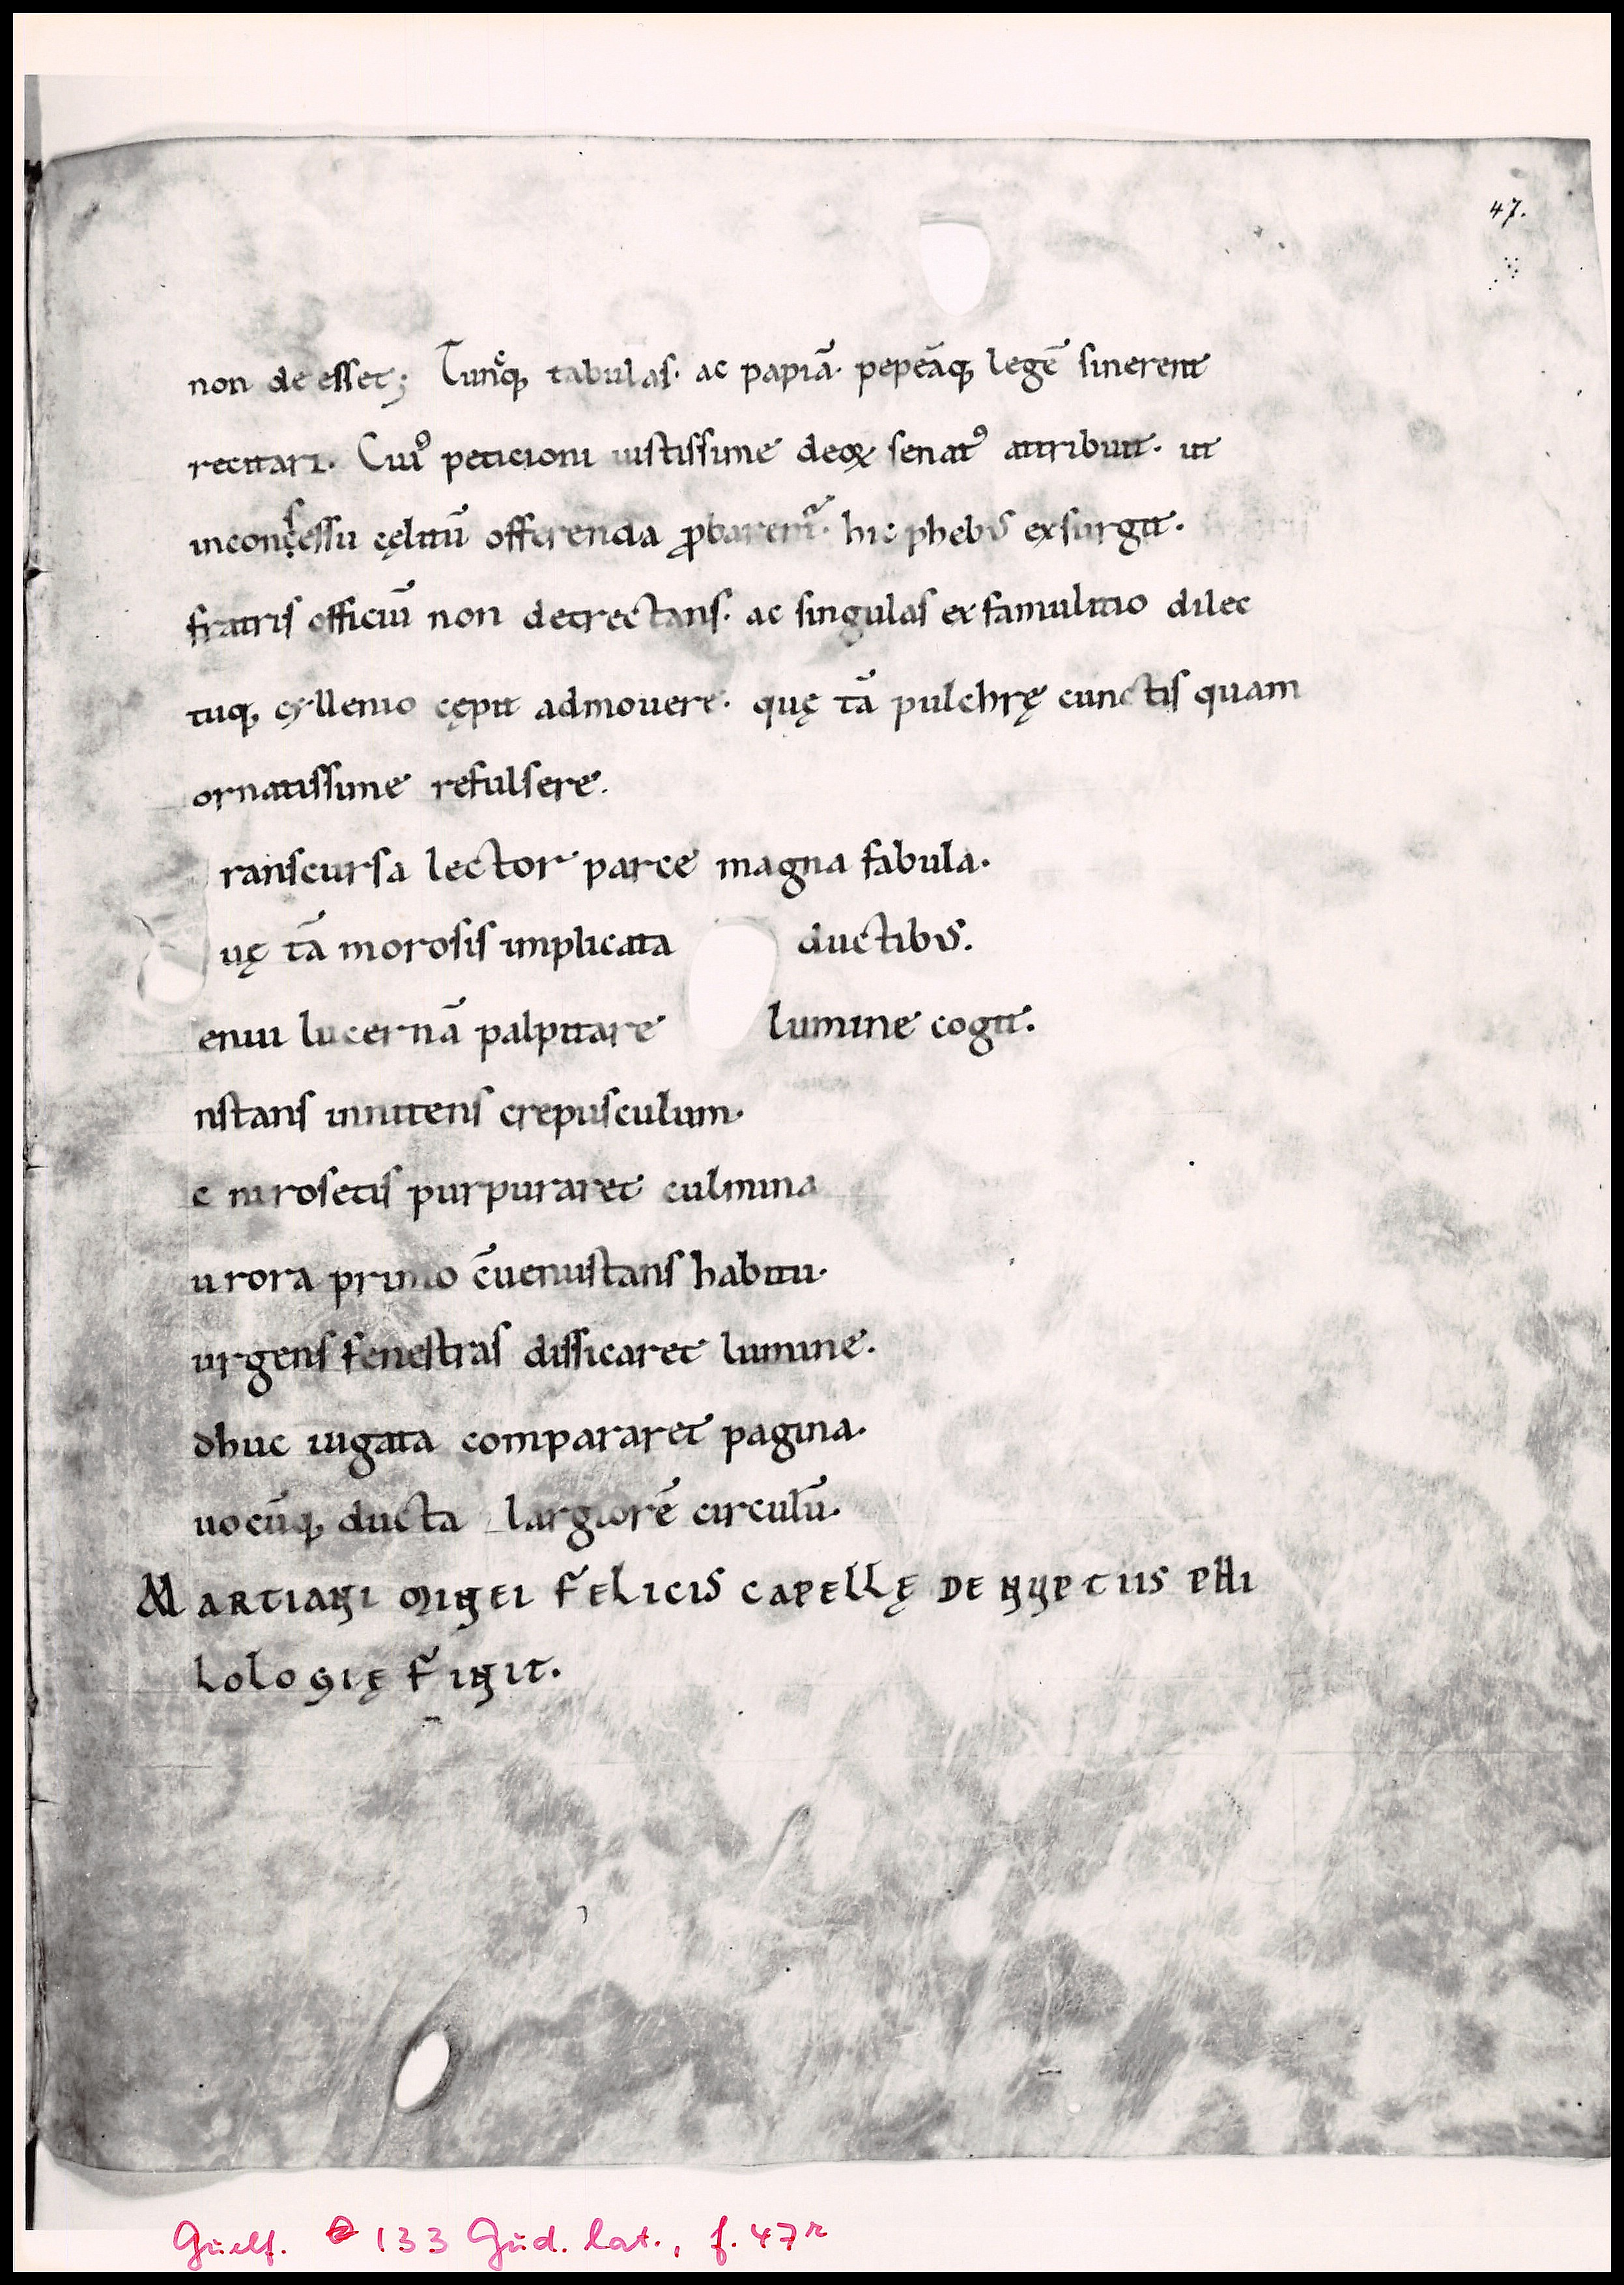 47.
non deesset; Tunc̃q, tabulas. ac papiã. pepeãq, legẽ sinerent
recitari. Cui᷒ peticioni iustissime deoꝝ senat᷒ attribuit. ut
inconçessu cęlitũ offerenda ꝓbarent᷑. hic phebus exsurgit.
fratris officiũ non detrectans. ac singulas ex famulitio dilec
tuq, cyllenio cępit admouere. quę tã pulchrę cunctis quam
ornatissime refulsere.
ranscursa lector parce magna fabula.
uę tã morosis implicata ductibus.
enui lucernã palpitare lumine cogit.
nstans innitens crepusculum.
c ni rosetis purpuraret culmina
urora primo c̃uenustans habitu.
urgens fenestras dissicaret lumine.
dhuc iugata compararet pagina.
uocũq, ducta largiorẽ circulũ.
MARTIANI MINEI FELICIS CAPELLĘ DE NUPTIIS PHI
LOLOGIĘ FINIT.
Guelf. 133 Gud. lat., f. 47r